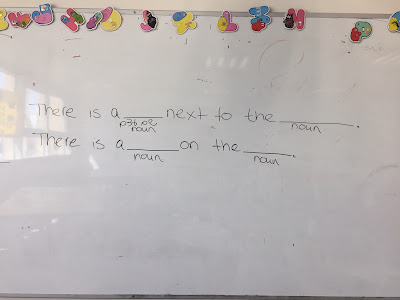 There is a ______ next to the ________.
שם עצם
noun noun
There is a ______ on the ______.
noun noun